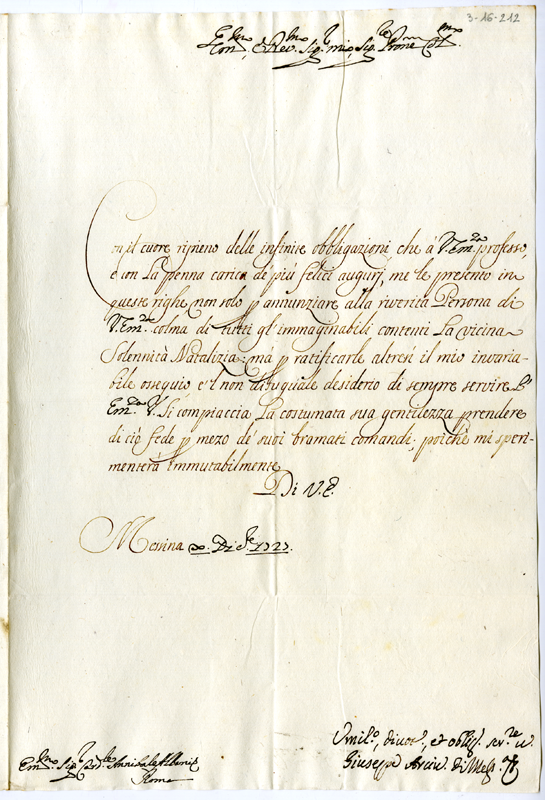 3-16-212
Em.mo, e Rev.mo Sig.r mio, Sig.re Prone Col.mo
Con il cuore ripieno delle infinite obbligazioni, che à V. Em.za professo,
e con La penna carica di più felici augurj, me le presento in
queste righe non solo p annunziare alla riverita Persona di
V. Em.za colma di tutti gl'immaginabili contenti La vicina
Solennità Natalizia; mà p ratificarle altresi il mio invaria-
bile ossequio, e'l non disuguale desiderio di sempre servire L'
Em.za V. Si compiaccia La costumata sua gentilezza prendere
di ciò fede p mezo de' suoi bramati comandi; poiche mi speri-
menterà immutabilmente
Di V. E.
Messina Di 1727.
Umil.o, divot.o, et oblig. ser.re v.
Giuseppe Arciv. di Mess.
Em.mo Sig.r Card.le Annibale Albani
Roma